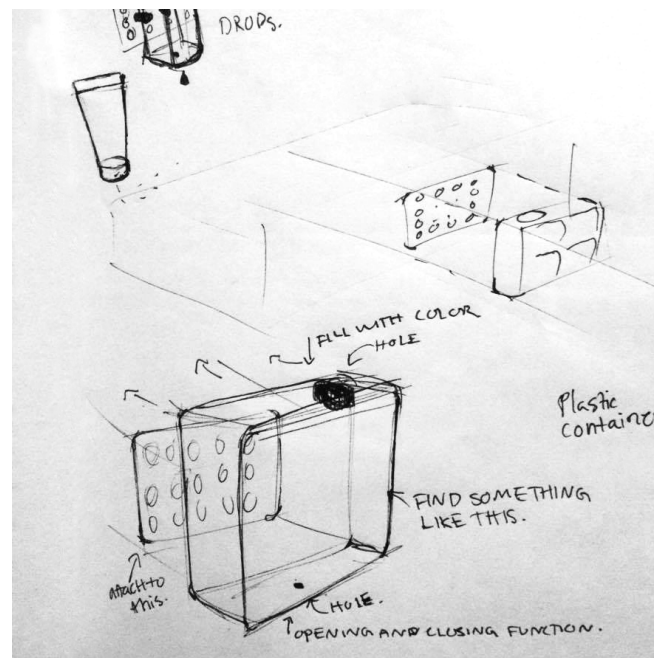 DROPS.
FILL WITH COLOR
HOLE
Plastic
container
FIND SOMETHING
LIKE THIS.
attach to
this.
HOLE.
OPENING AND CLOSING FUNCTION.